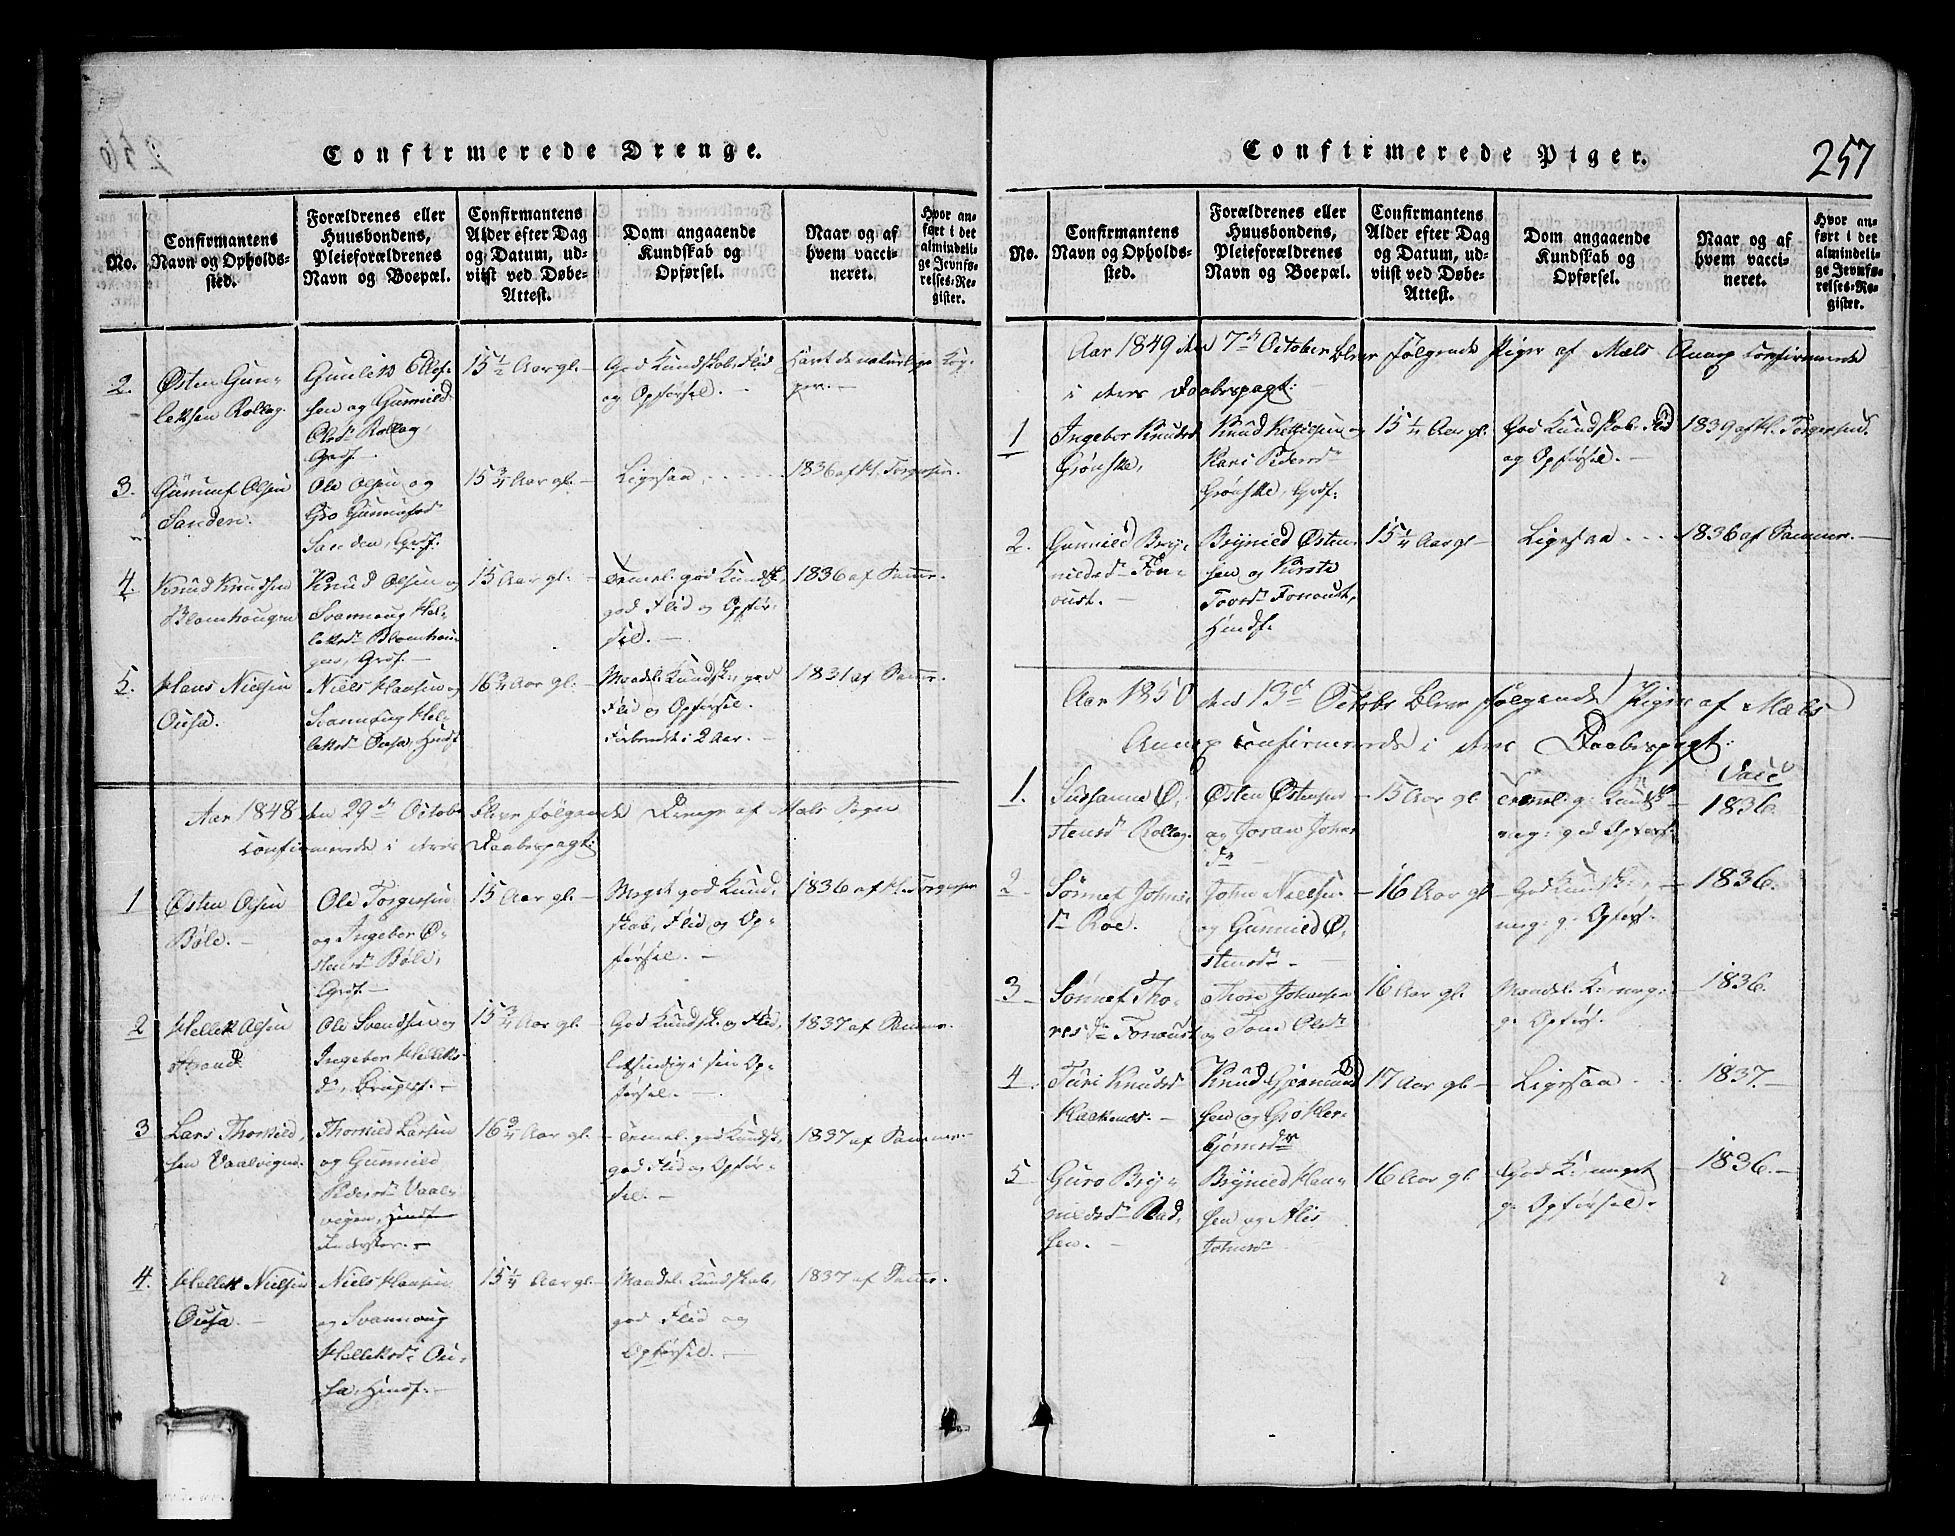 Confirmerede Drenge.
No.
Confirmantens
Navn og Opholds-
sted.
Forældrenes eller
Huusbondens,
Pleieforældrenes
Navn og Boepæl.
Confirmantens
Alder efter Dag
og Datum, ud-
viist ved Døbe-
Attest.
Dom angaaende
Kundskab og
Opførsel.
Naar og af
hvem vacci-
neret.
Hvor an-
ført i det
almindeli-
ge Jevnfø-
relses-Re-
gister.
2.
Østen Gun-
leksen Rollag.
Gunlek
sen og Gunnild
Olsdr Rollag,
Grdf.
15 1/2 Aar gl.
God Kundskab, Flid
og Opførsel.
Havt de naturlige Kop-
per.
3.
Gunnuf Olsen
Sanden.
Ole Olsen og
Gro Gunnufsd
Sanden, Grdf.
15 3/4 Aar gl.
Ligesaa
1836 af H. Torgersen.
4.
Knud Knudsen
Blomhougen
Knud Olsen og
Svannoug Hel-
leksdr Blomhou-
gen, Grdf.
15 Aar gl.
Temel. god Kundsk,
god Flid og Opfør-
sel.
1836 af
5.
Hans Nielsen
Ousa.
Niels Hansen og
Svannoug Hel-
leksdr Ousa, Huusf
16 3/4 Aar gl.
Maadel. Kundsk. god
Flid og Opførsel.
Forberedt i 2 Aar.
1831 af
Aar 1848, den 29de Octobr bleve følgende Drenge af Mæls Sogn
confirmerede i deres Daabspagt:
1
Østen Olsen
Bøle.
Ole Torgersen
og Ingebor Ø-
stensdr Bøle,
Grdf.
15 Aar gl.
Meget god Kund-
skab, Flid og Op-
førsel.
1836 af H. Torgersen
2
Hellek Olsen
Strand
Ole Svendsen og
Ingebor Helleks-
dr,
15 3/4 Aar gl.
God Kundsk. og Flid,
letsindig i sin Op-
førsel.
1837 af
3
Lars Thorkild-
sen Vaalvigen.
Thorkild Larsen
og Gunnild
Pedersdr Vaal-
vigen,
Inderster.
16 3/4 Aar gl.
Temel. god Kundsk,
god Flid og Opfør-
sel.
1837 af
4.
Hellek Nielsen
Ousa.
Niels Hansen
og Svannoug
Helleksdr Ou-
sa, Huusf.
15 1/4 Aar gl.
Maadel. Kundskab,
god Flid og
Opførsel.
1837 af
Confirmerede Piger.
257
No.
Confirmantens
Navn og Opholds-
sted.
Forældrenes eller
Huusbondens,
Pleieforældrenes
Navn og Boepæl.
Confirmantens
Alder efter Dag
og Datum, ud-
viist ved Døbe-
Attest.
Dom angaaende
Kundskab og
Opførsel.
Naar og af
hvem vacci-
neret.
Hvor an-
ført i det
almindeli-
ge Jevnfø-
relses-Re-
gister.
Aar 1849 den 7de October bleve følgende Piger af Mæls Annex confirmerede
i deres Daabspagt:
1
Ingebor Knudsd
Grønske,
Knud Kittelsen og
Kari Pedersdr
Grønske, Grdf.
15 1/4 Aar gl.
God Kundskab, Flid
og Opførsel.
1839 af H. Torgersen.
2.
Gunnild Bry-
nildsdr Fon-
oust.
Brynild Østen-
sen og Kirste
Tovsdr Fonoust,
Huusf.
15 1/4 Aar gl.
Ligesaa
1836 af
Aar 1850 den 13de Octobr bleve følgende Piger af Mæls
Annex confirmerede i deres Daabspagt:
1.
Susanne Ø-
stensdr Rollag.
Østen Østensen
og Joran Johns
dr
15 Aar gl.
Temml. g. Kundsk.
meg. god Opførs.
Vacc
1836.
2
Sønnef Johns-
dr Roe.
John Nielsen
og Gunnild Ø-
stensdr
16 Aar gl.
God Kundsk.
meg. g. Opførs.
1836.
3
Sønnef Tho-
resdr Fonoust
Thore Johansen
og Tone Olsdr
16 Aar gl.
Maadel. K. meg.
g. Opførs.
1836.
4.
Turi Knudsd
Haakenæs.
Knud Gjermund
sen og Gro Her-
bjørnsdr
17 Aar gl.
Ligesaa
1837.
5
Guro Bry-
nildsdr Bad-
sen.
Brynild Han-
sen og Alis
Johnsdr
16 Aar gl.
God K. meget
g. Opførsel.
1836.